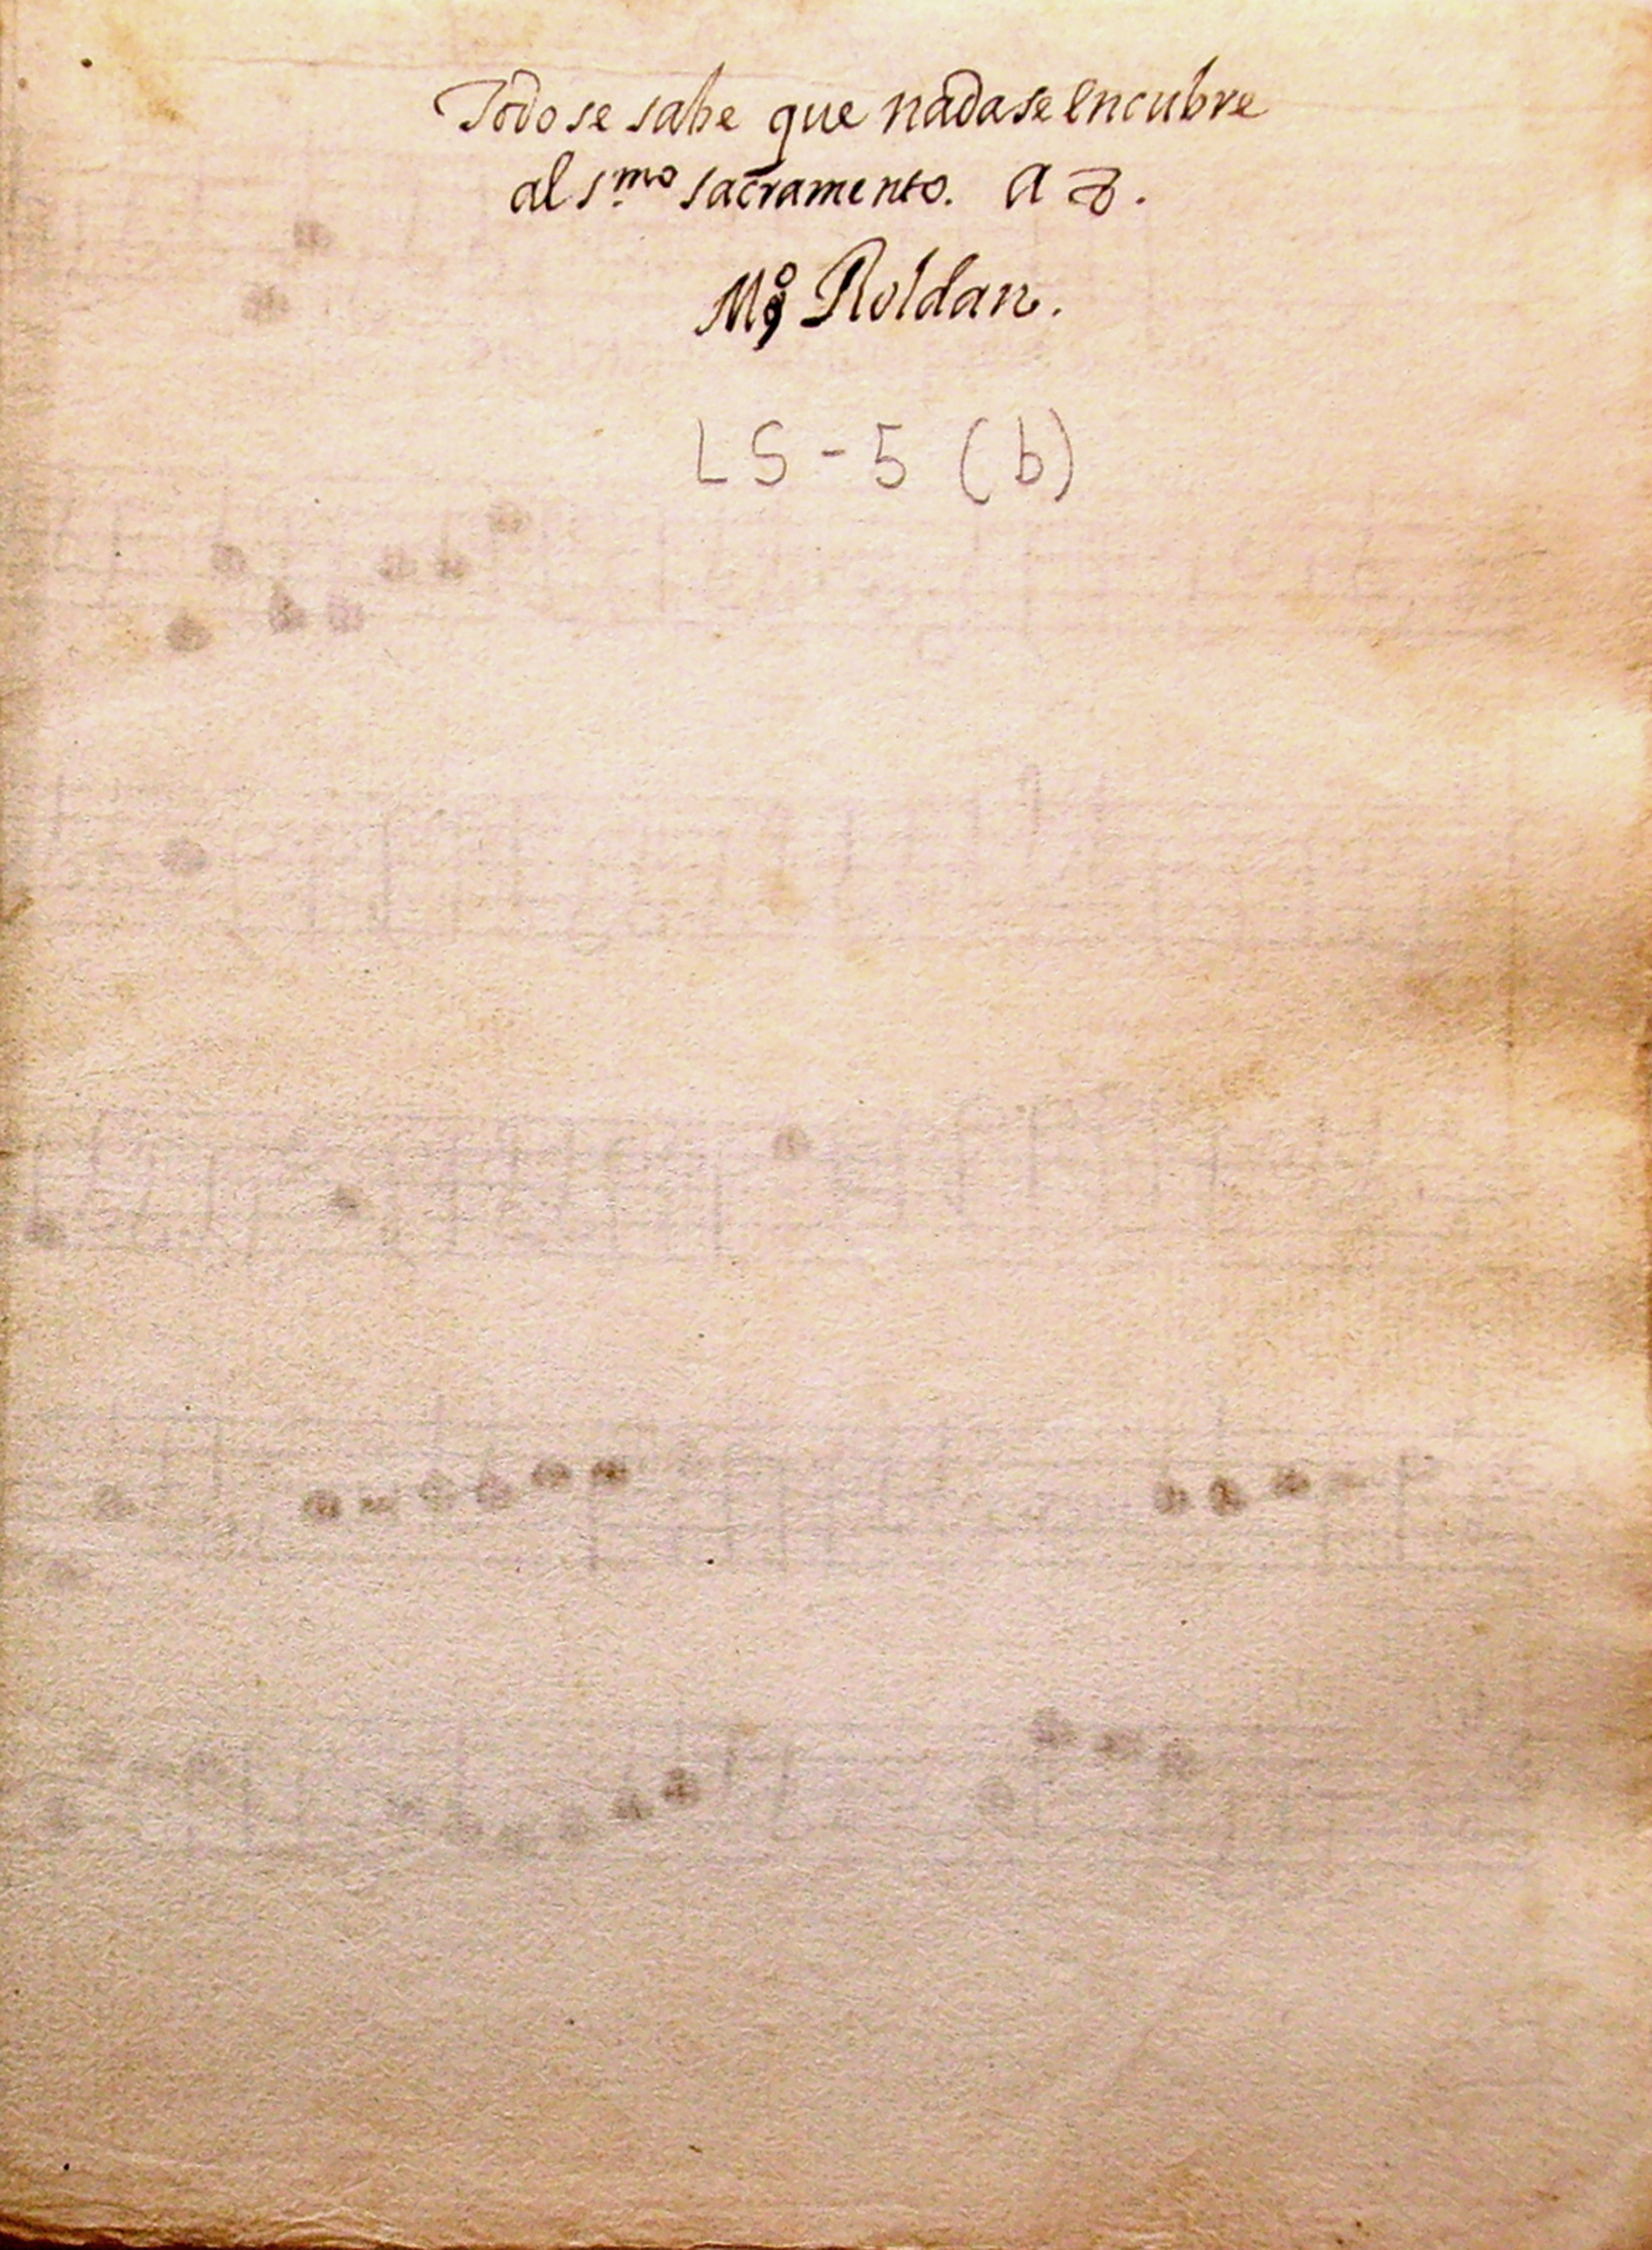 Todo se sabe que nada se encubre
al s.mo sacramento. a 3.
Mo Roldan.
LS-5 (b)